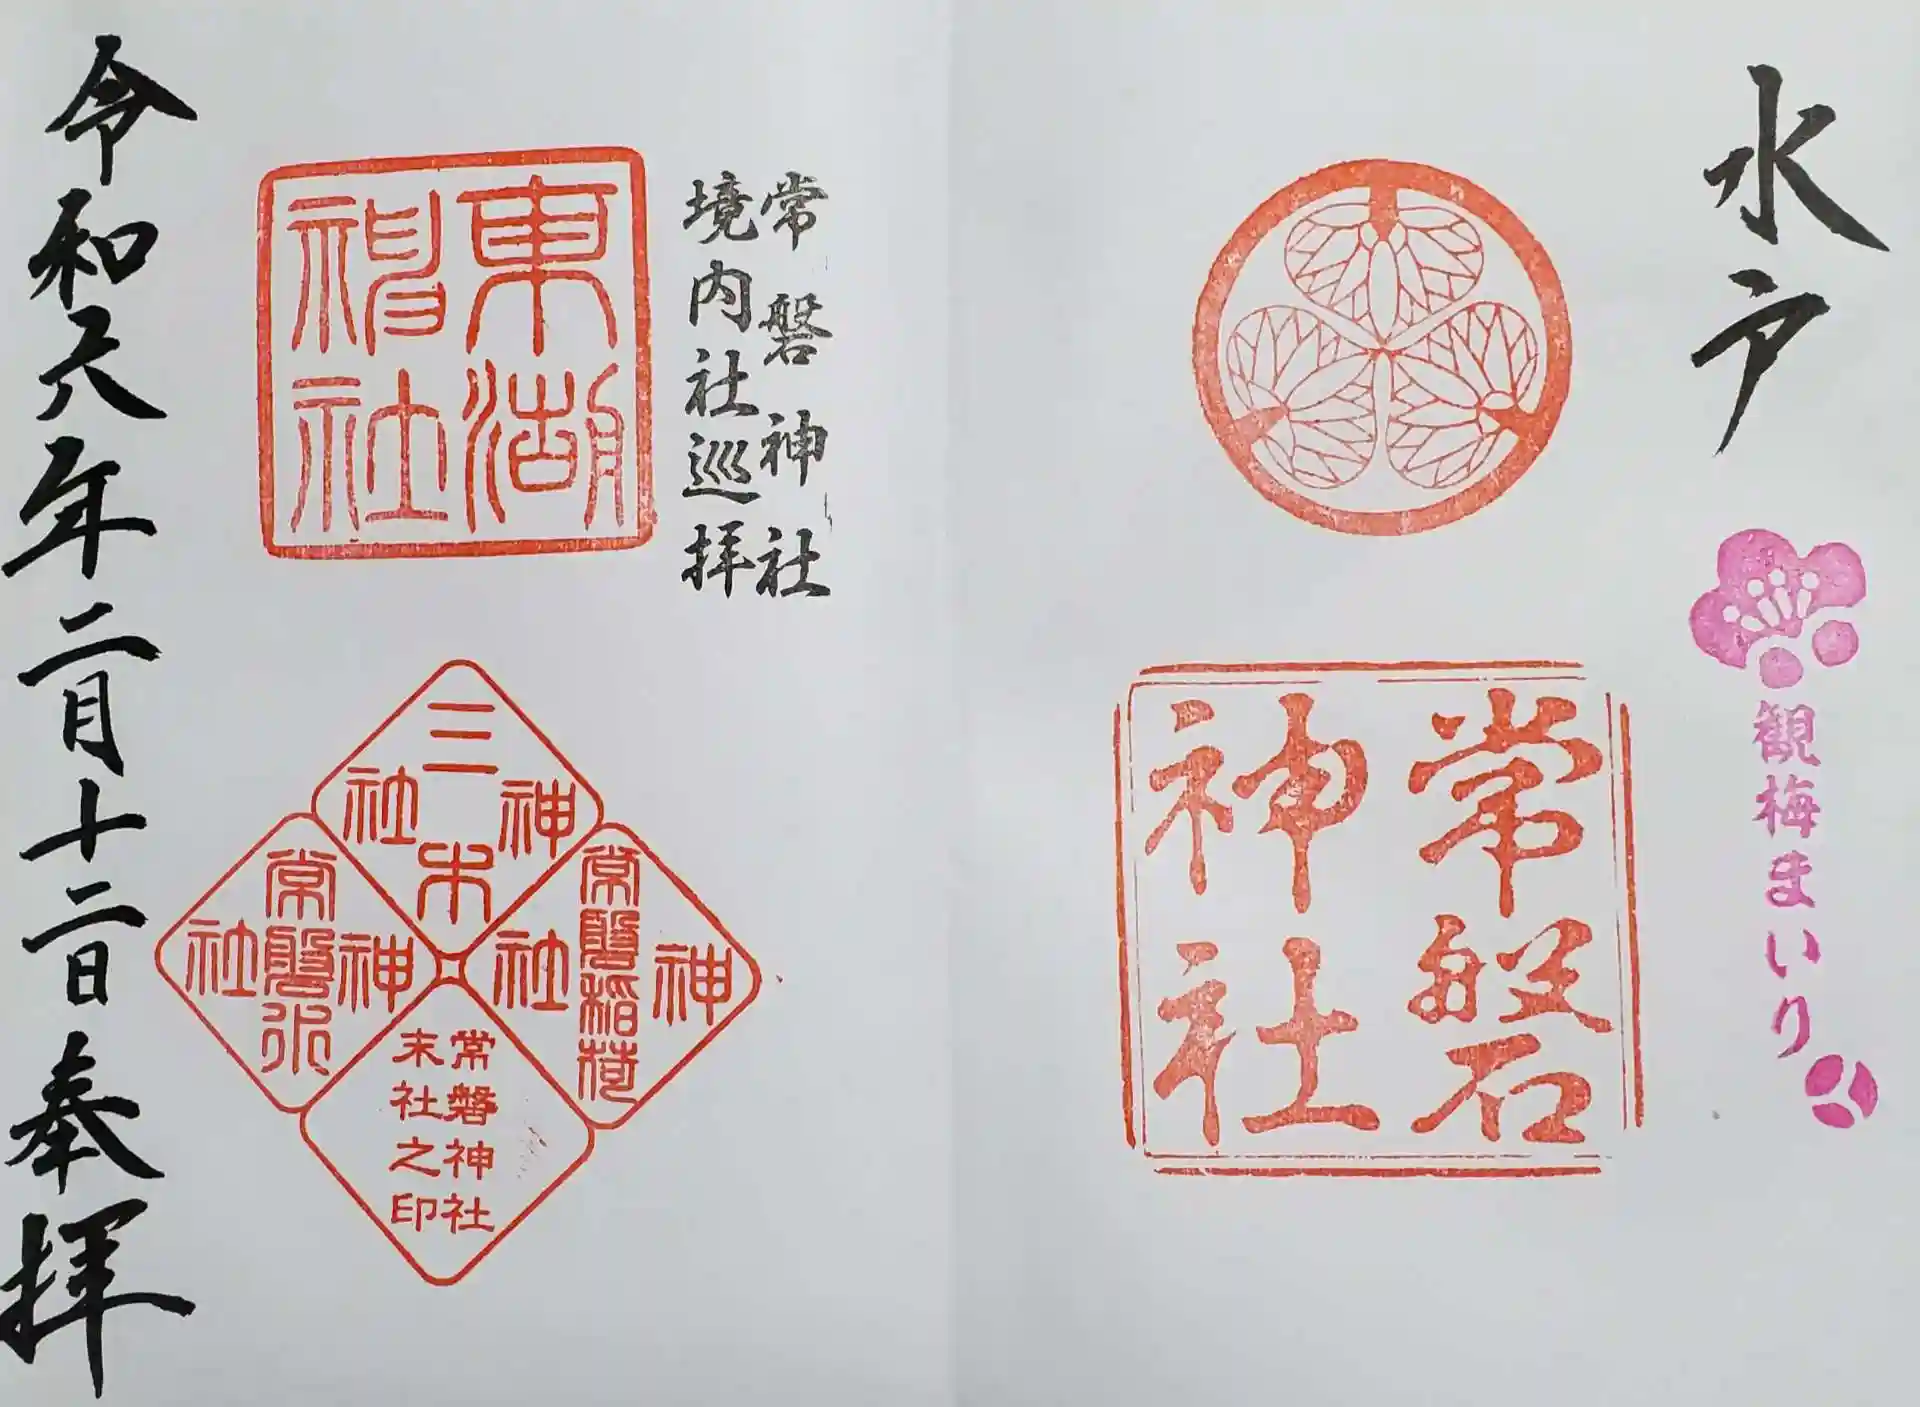 水戸
観梅まいり
常磐
神社
常磐神社
境内社巡拝
東湖
神社
三木
神社
常磐稲荷
神社
常磐
神社
常磐神社
末社之印
令和六年二月十二日奉拝